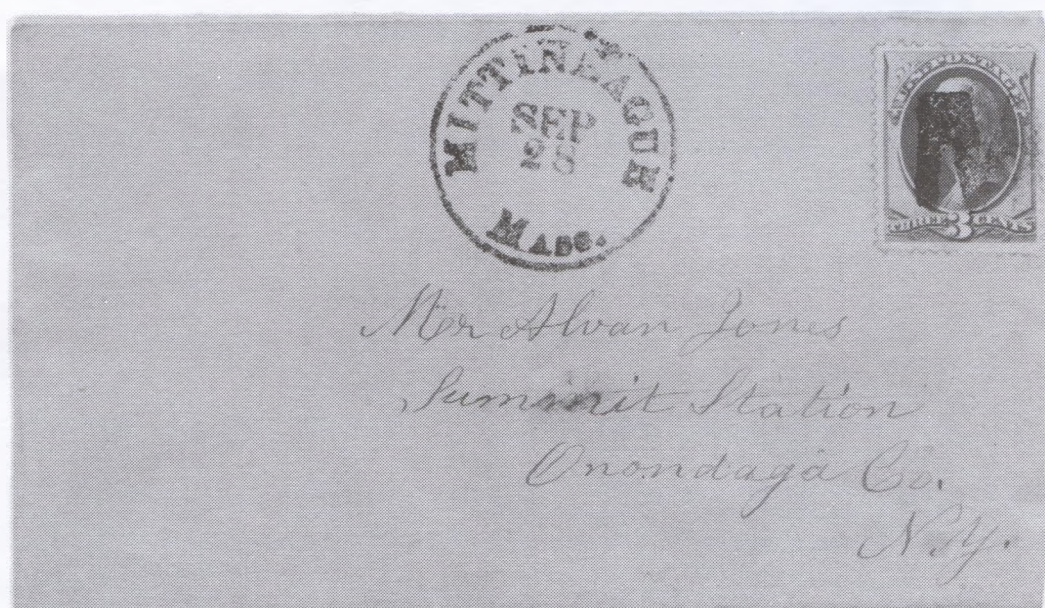 MITTINEAGUE
SEP
MASS.
U.S. POSTAGE
THREE 3 CENTS
Mr Alvan Jones
Summit Station
Onondaga Co.
N.Y.